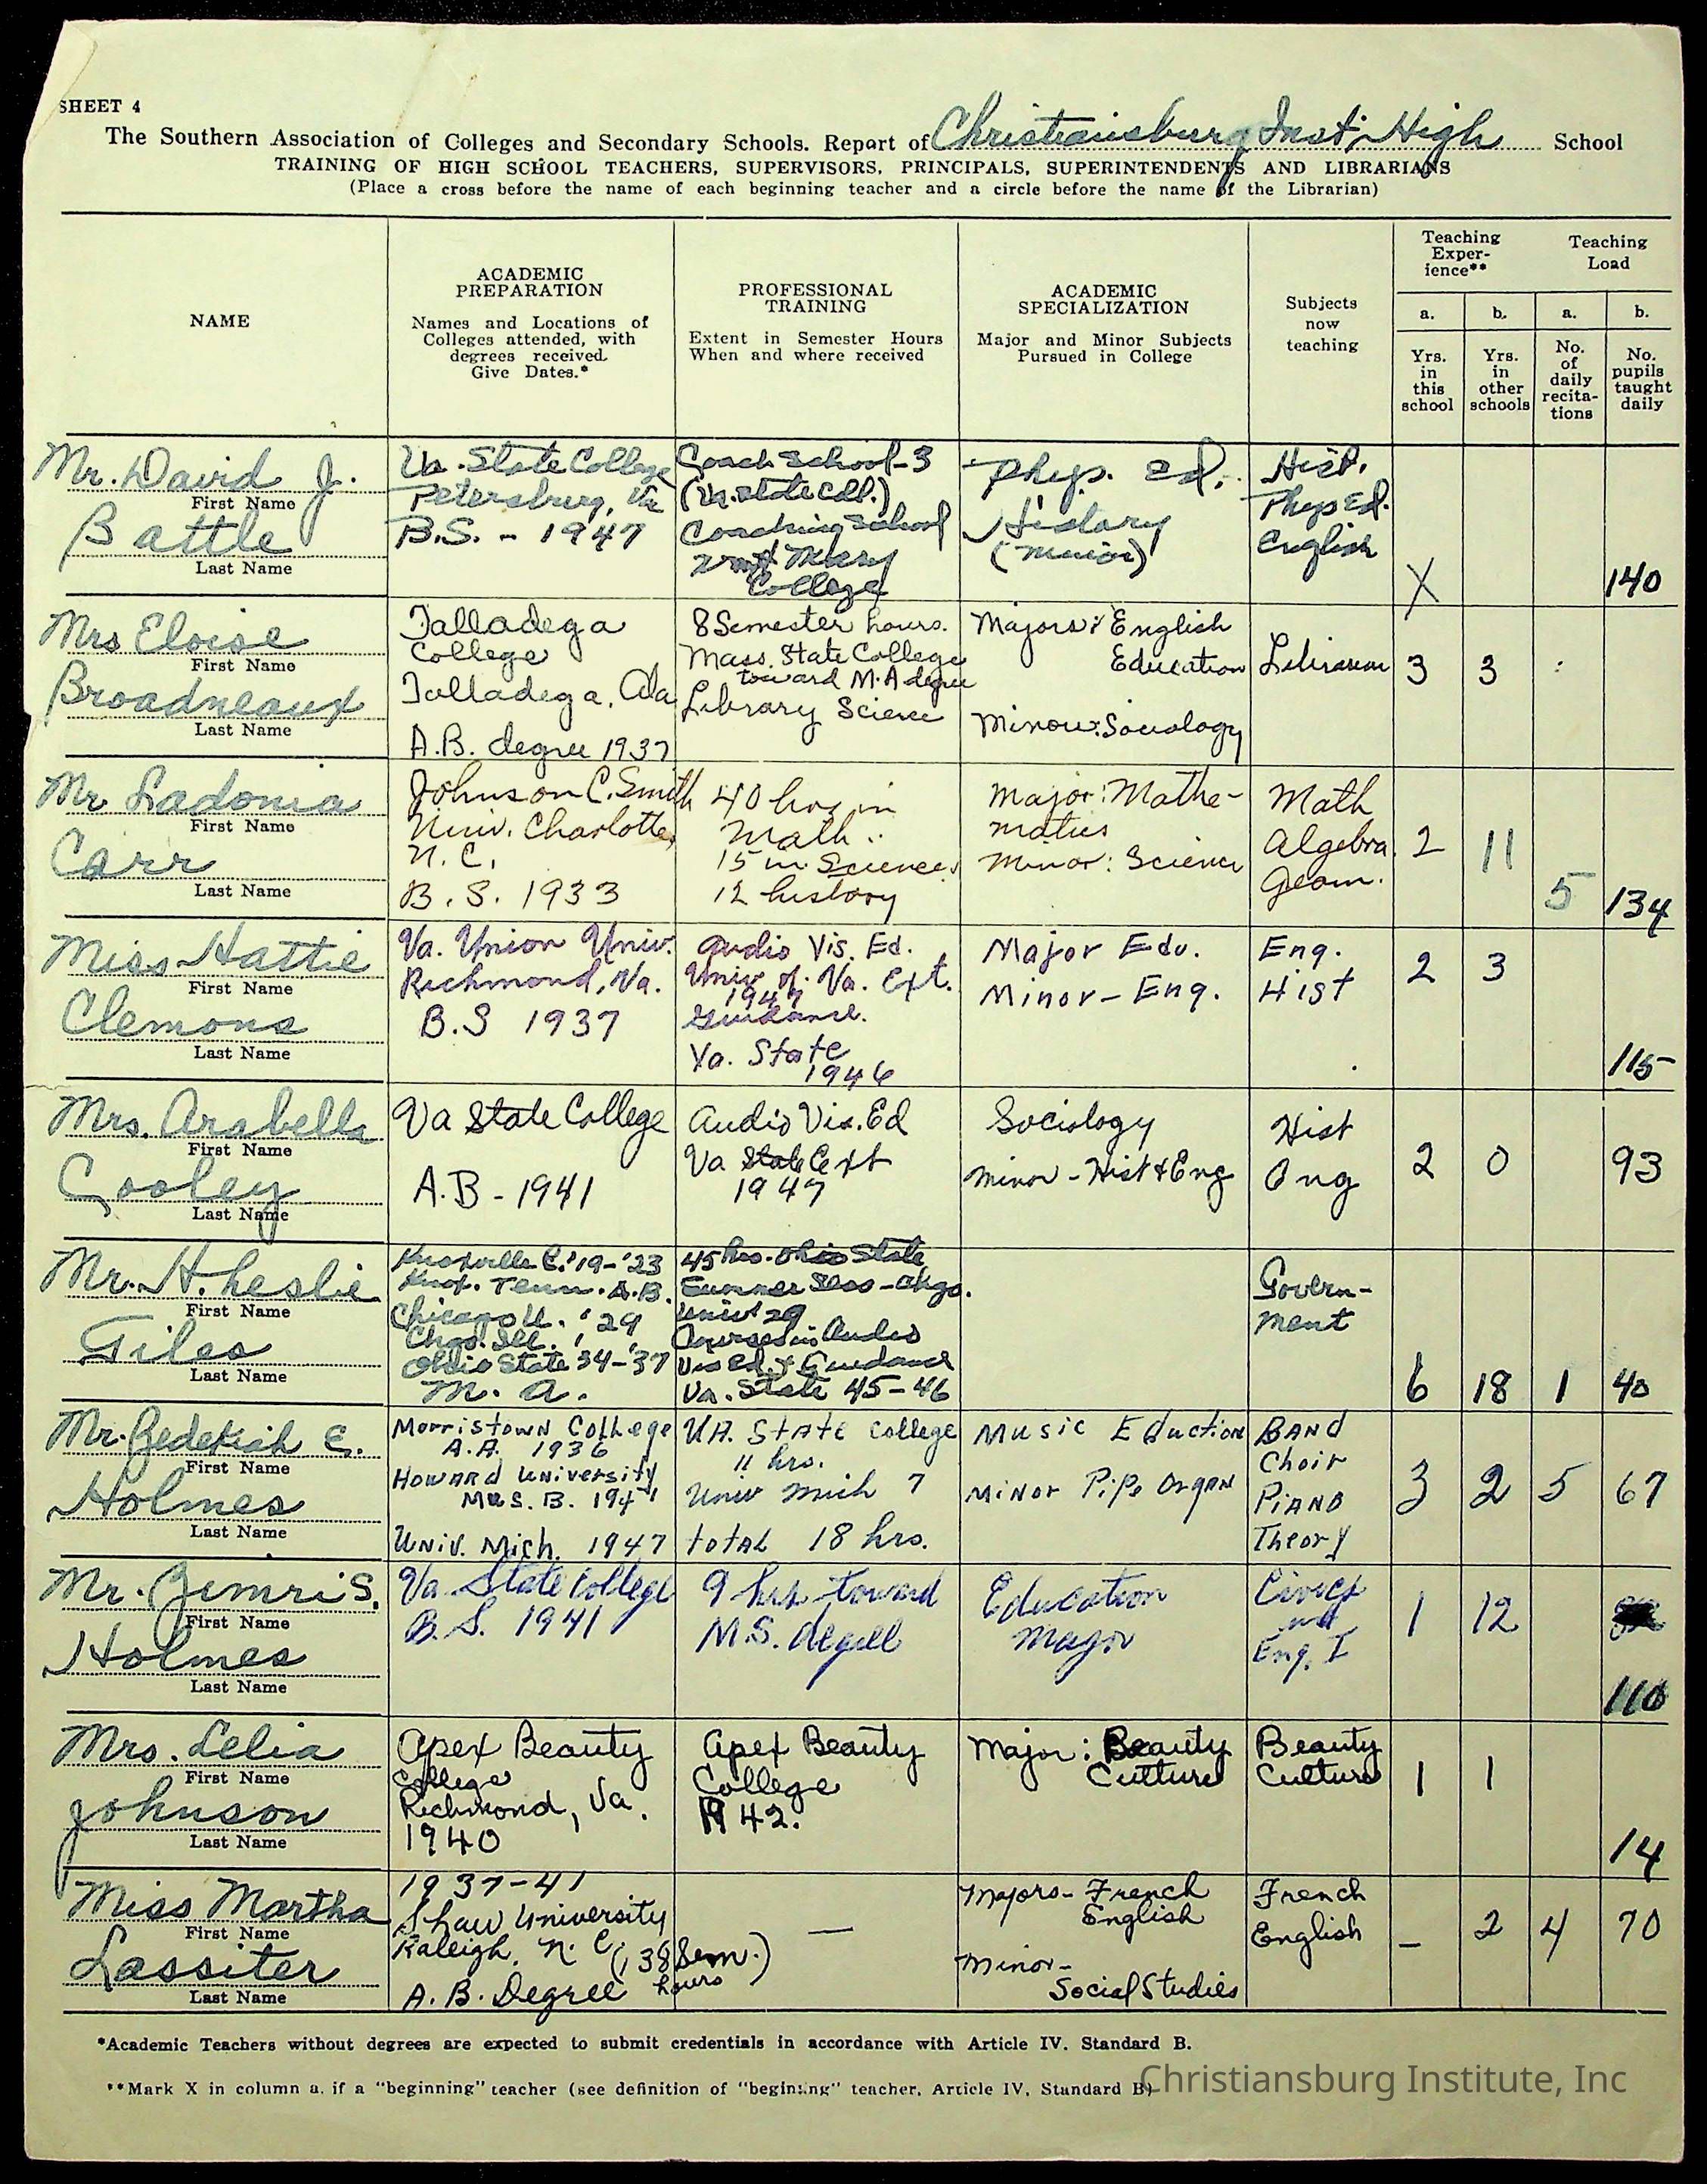 SHEET 4
The Southern Association of Colleges and Secondary Schools. Report of Christiansburg Inst. High School
TRAINING OF HIGH SCHOOL TEACHERS, SUPERVISORS, PRINCIPALS, SUPERINTENDENTS AND LIBRARIANS
(Place a cross before the name of each beginning teacher and a circle before the name of the Librarian)
NAME
ACADEMIC
PREPARATION
Names and Locations of
Colleges attended, with
degrees received.
Give Dates.*
PROFESSIONAL
TRAINING
Extent in Semester Hours
When and where received
ACADEMIC
SPECIALIZATION
Major and Minor Subjects
Pursued in College
Subjects
now
teaching
Teaching
Exper-
ience**
a.
Yrs.
in
this
school
b.
Yrs.
in
other
schools
Teaching
Load
a.
No.
of
daily
recita-
tions
b.
No.
pupils
taught
daily
Mr. David J.
First Name
Battle
Last Name
Va. State College
Petersburg, Va
B.S. - 1947
Coach School-3
(Va. State Coll.)
Coaching School
Mary
College
Phys. Ed.
History
(minor)
Hist.
Phys Ed.
English
X
140
Mrs Eloise
First Name
Broadneaux
Last Name
Talladega
College
Talladega, Ala
A.B. degree 1937
8 Semester hours.
Mass. State College
toward M.A degree
Library Science
Majors: English
Education
Minor: Sociology
Librarian
3
3
Mr Ladonia
First Name
Carr
Last Name
Johnson C. Smith
Univ. Charlotte,
N.C.
B.S. 1933
40 hrs in
Math
15 in Science
12 history
Major: Mathe-
matics
Minor: Science
Math
Algebra
Geom.
2
11
5
134
Miss Hattie
First Name
Clemons
Last Name
Va. Union Univ.
Richmond, Va.
B.S 1937
Audio Vis. Ed.
Univ of. Va. Ext.
1947
Guidance.
Va. State
1946
Major Edu.
Minor - Eng.
Eng.
Hist
2
3
115
Mrs. Arabella
First Name
Cooley
Last Name
Va State College
A.B - 1941
Audio Vis. Ed
Va State Ext
1947
Sociology
minor - Hist & Eng
Hist
Eng
2
0
93
Mr. H. Leslie
First Name
Giles
Last Name
Knoxville C. '19-'23
Knox. Tenn. A.B.
Chicago U. '29
Chgo. Ill.
Ohio State 34-37
M.A.
45 hrs. Ohio State
Summer Sess - Chgo.
Univ '29
Courses in Audio
Vis Ed. & Guidance
Va. State 45-46
Govern-
ment
6
18
1
40
Mr. Zedekiah E.
First Name
Holmes
Last Name
Morristown College
A.A. 1936
Howard University
Mus. B. 1941
Univ. Mich. 1947
VA. State College
11 hrs.
Univ Mich 7
total 18 hrs.
Music Eduction
Minor Pipe Organ
Band
Choir
Piano
Theory
3
2
5
67
Mr. Zimri S.
First Name
Holmes
Last Name
Va State College
B.S. 1941
9 hrs toward
M.S. degree
Education
major
Civics
and
Eng. I
1
12
110
Mrs. Lelia
First Name
Johnson
Last Name
Apex Beauty
College
Richmond, Va.
1940
Apex Beauty
College
1942.
Major: Beauty
Culture
Beauty
Culture
1
1
14
Miss Martha
First Name
Lassiter
Last Name
1937-41
Shaw University
Raleigh, N.C. (38 Sem.)
hours
A.B. Degree
—
Majors - French
English
Minor -
Social Studies
French
English
—
2
4
70
*Academic Teachers without degrees are expected to submit credentials in accordance with Article IV. Standard B.
**Mark X in column a. if a "beginning" teacher (see definition of "beginning" teacher, Article IV, Standard B)
Christiansburg Institute, Inc